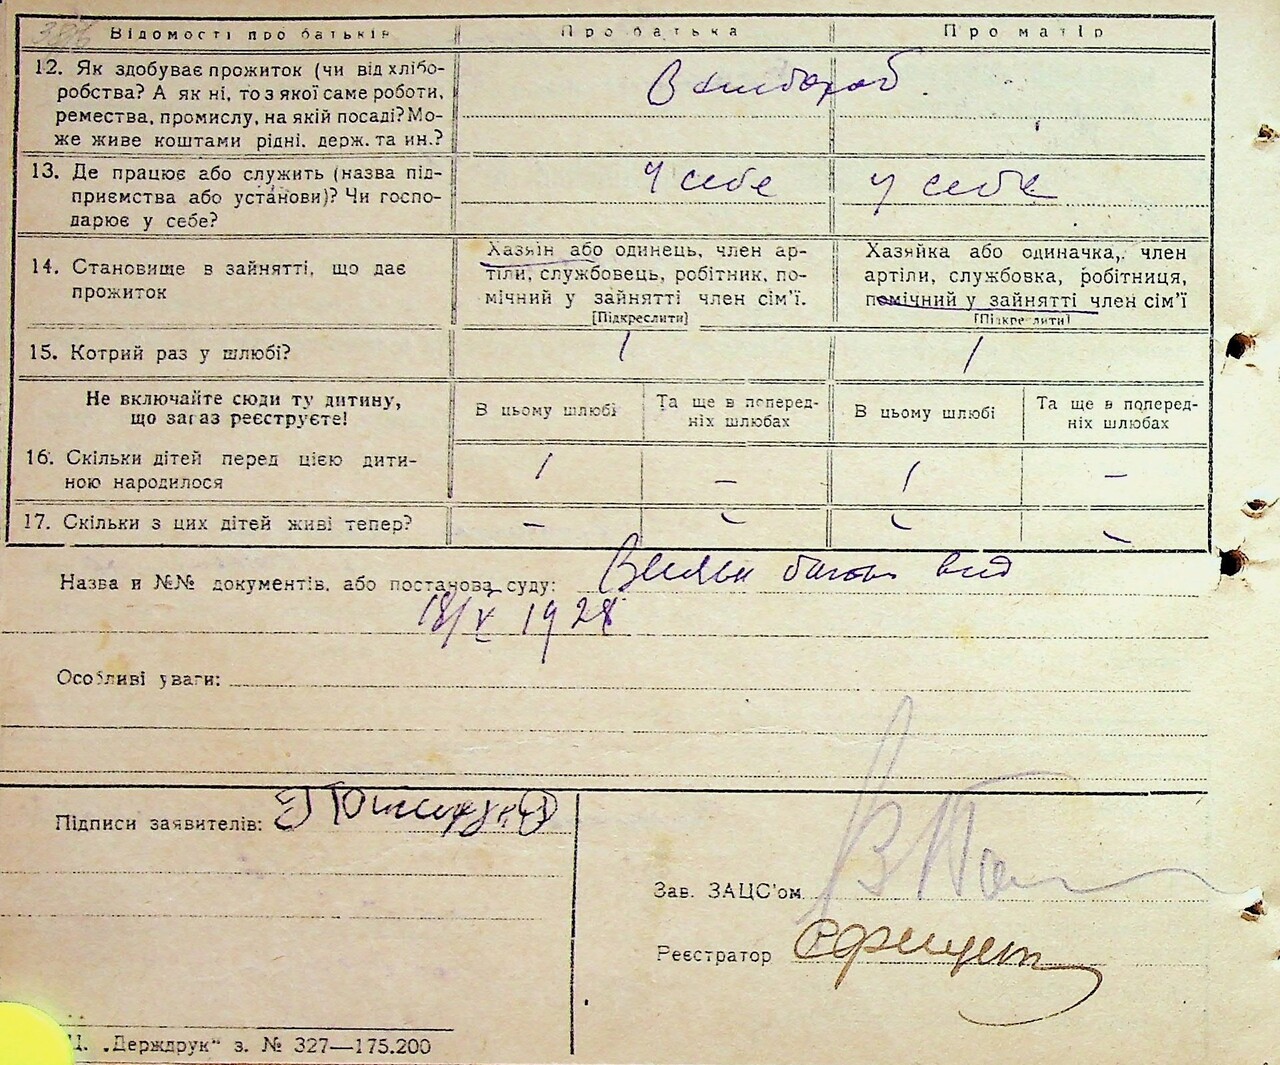 Відомості про батьків Про батька Про матір
12. Як здобуває прожиток (чи від хлібо-
робства? А як ні, то з якої саме роботи,
ремества, промислу, на якій посаді? Мо-
же живе коштами рідні, держ. та ин.?
13. Де працює або служить (назва під-
приємства або установи)? Чи госпо-
дарює у себе?
У себе У себе
14. Становище в зайнятті, що дає
прожиток
Хазяїн або одинець, член ар-
тіли, службовець, робітник, по-
мічний у зайнятті член сім'ї.
[Підкреслити]
Хазяйка або одиначка, член
артіли, службовка, робітниця,
помічний у зайнятті член сім'ї
[Підкреслити]
15. Котрий раз у шлюбі? 1 1
Не включайте сюди ту дитину,
що зараз реєструєте!
В цьому шлюбі
Та ще в поперед-
ніх шлюбах
В цьому шлюбі
Та ще в поперед-
ніх шлюбах
16. Скільки дітей перед цією дити-
ною народилося
1 – 1 –
17. Скільки з цих дітей живі тепер? – – – –
Назва и №№ документів, або постанова суду:
18/V 1928
Особливі уваги:
Підписи заявителів:
Зав. ЗАЦС'ом
Реєстратор
Ц. „Держдрук" з. № 327—175.200